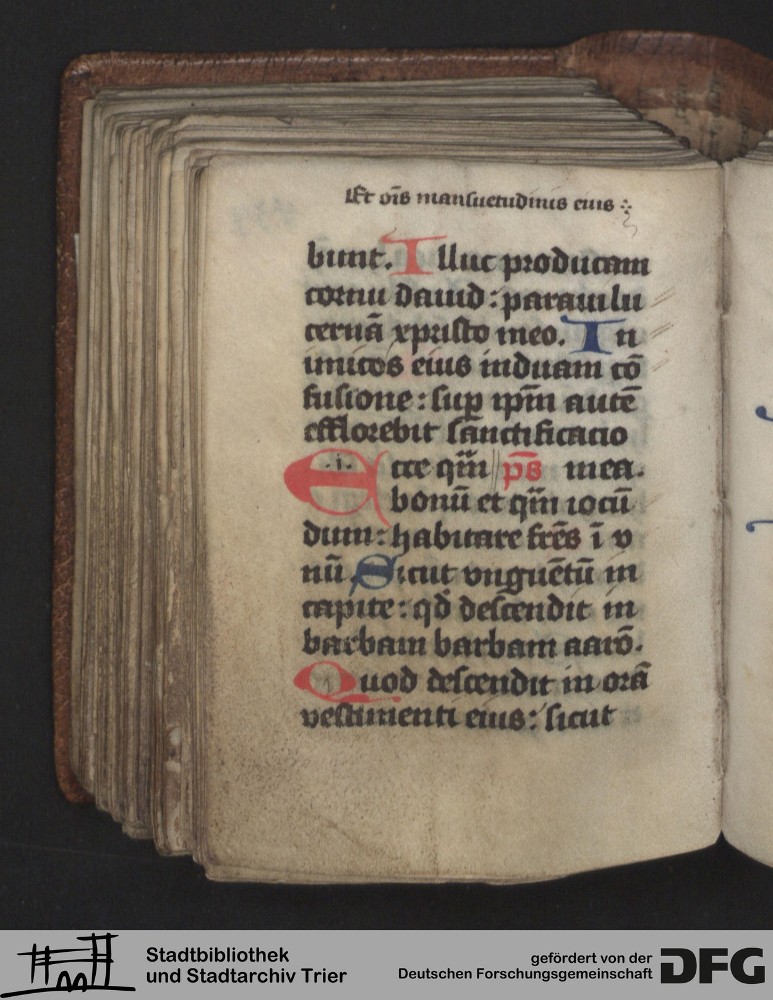 Et oīs mansuetudinis eius :
bunt. Illuc producam
cornu dauid : paraui lu
cernā xpristo meo. In
imicos eius induam cō
fusione : sup ipm̄ autē
efflorebit sanctificacio
Ecce qm̄ ps̄ mea.
.i.
bonū et qm̄ iocū
dum : habitare frēs ī v
nū Sicut vnguētū in
capite : qd̄ descendit in
barbam barbam aarō.
Quod descendit in orā
vestimenti eius : sicut
Stadtbibliothek
und Stadtarchiv Trier
gefördert von der
Deutschen Forschungsgemeinschaft
DFG